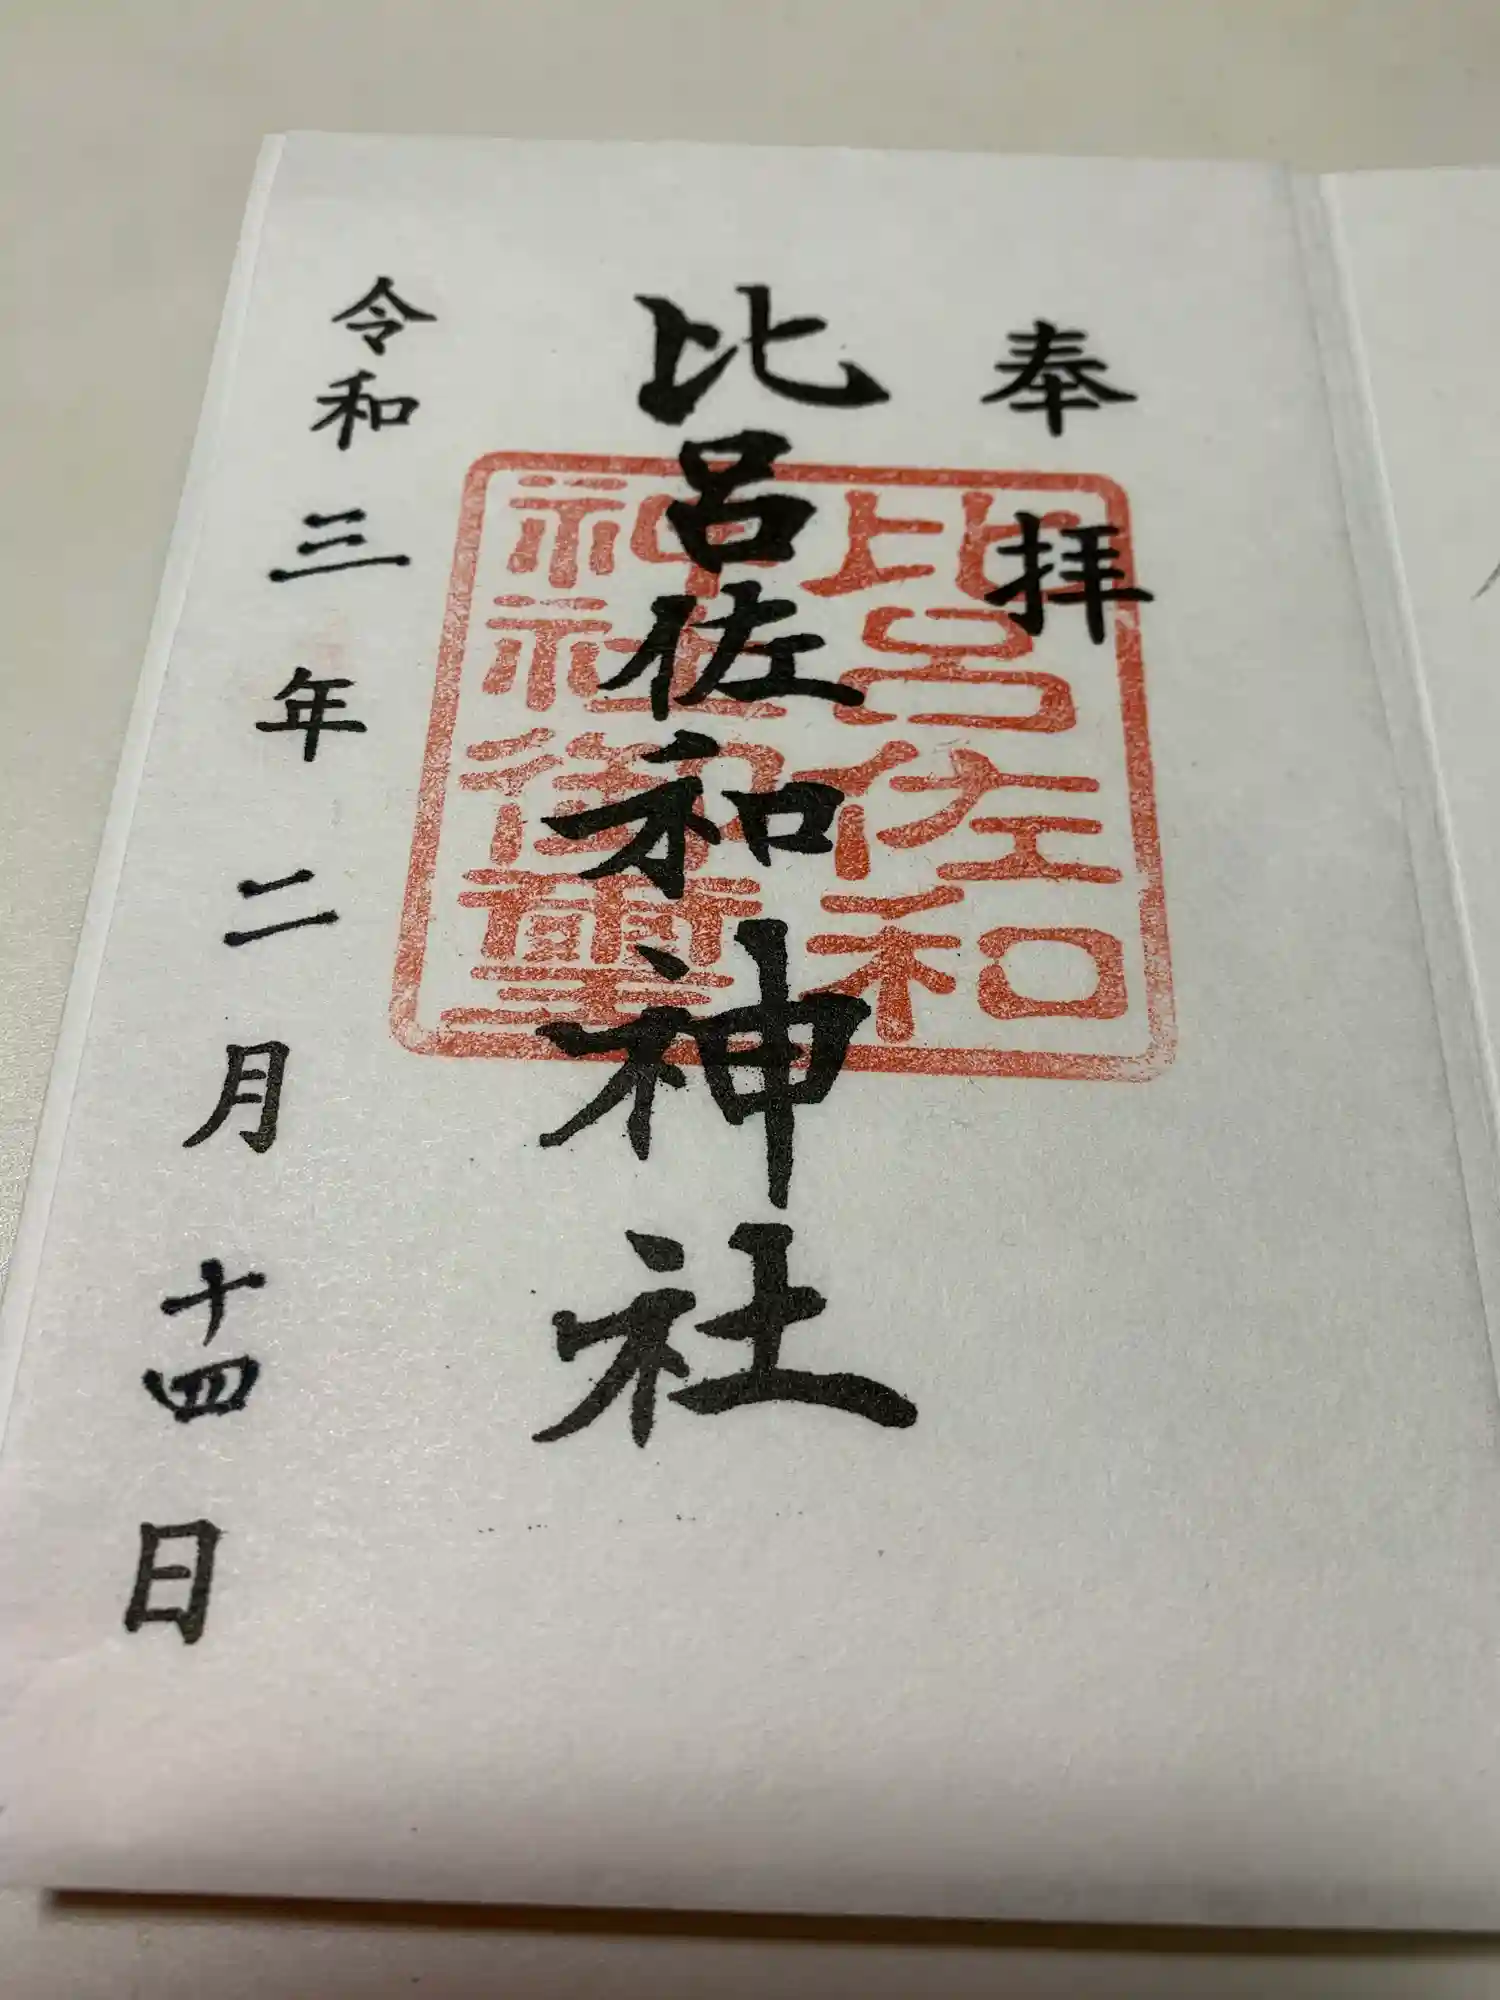 奉拝
比呂佐和神社
比呂佐和
神社御璽
令和三年二月十四日